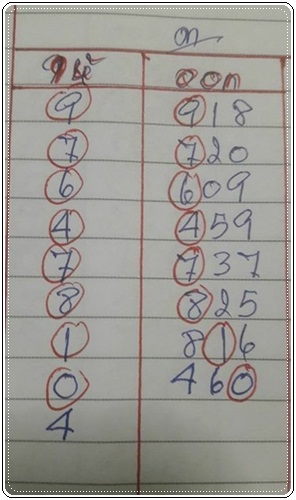 ออก
9 918
7 720
6 609
4 459
7 737
8 825
1 816
0 460
4